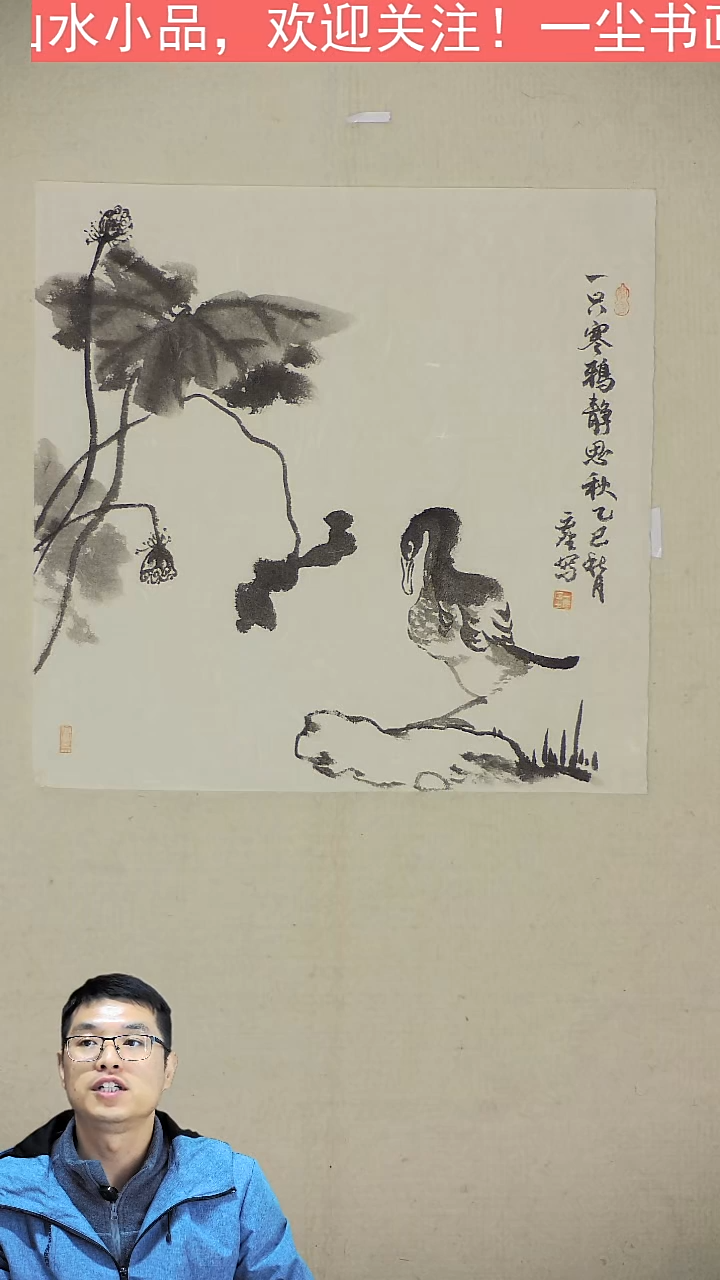 山水小品，欢迎关注！一尘书画
一只寒鸦静思秋乙巳秋月
一尘写